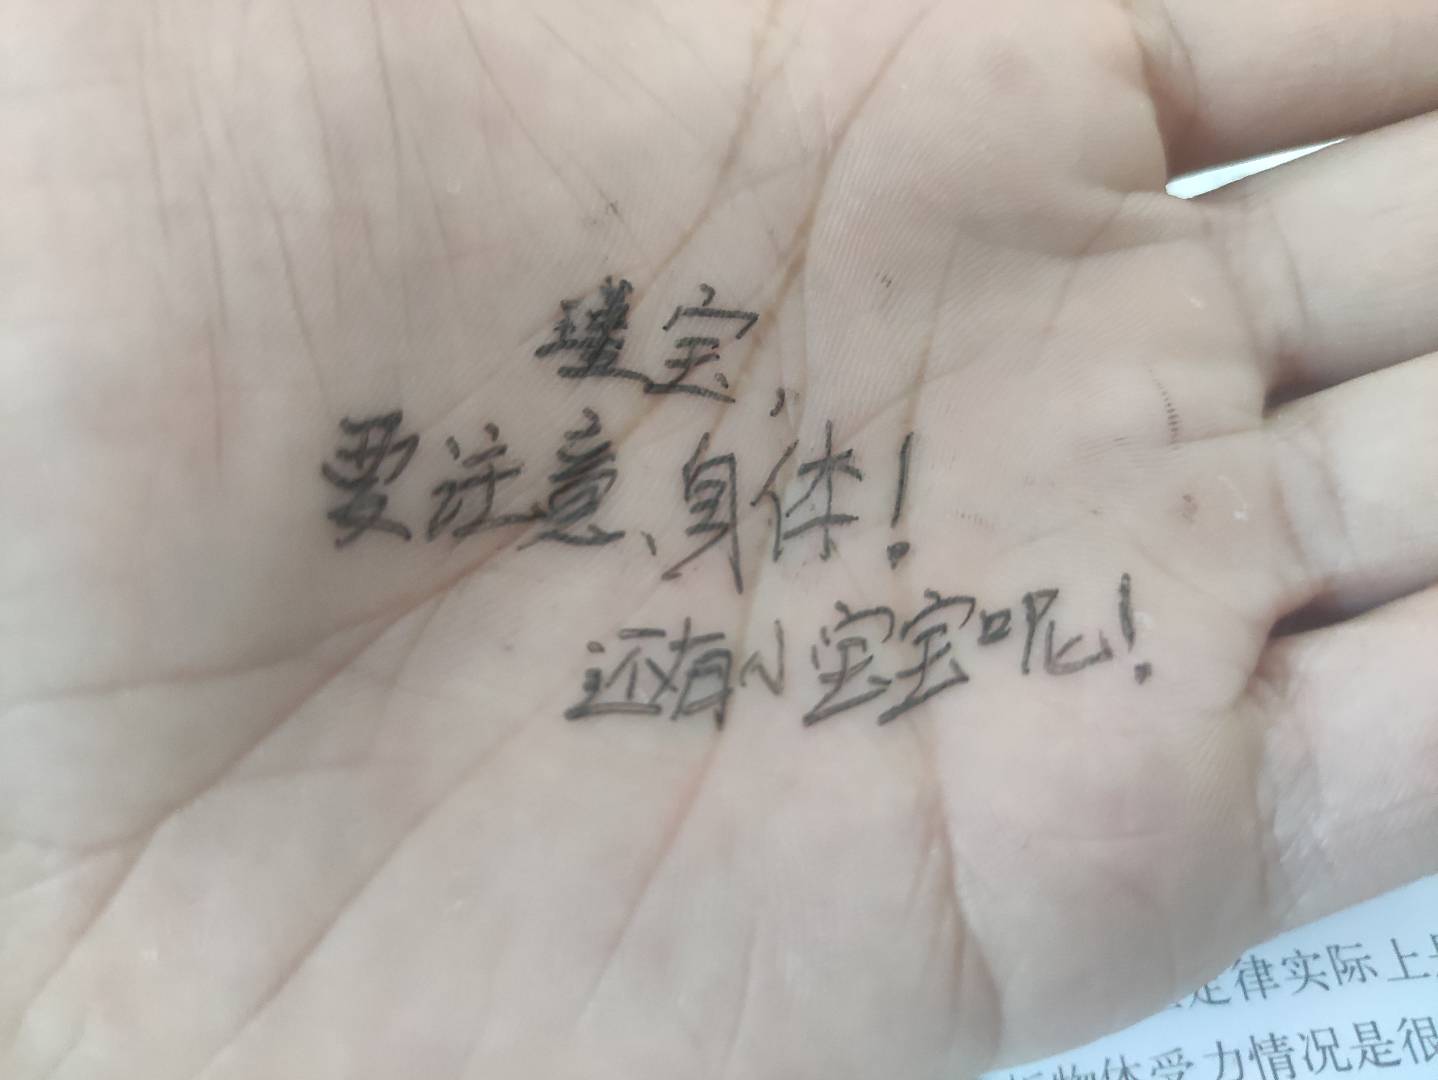 瑾宝，
要注意身体！
还有小宝宝呢！
定律实际上是
物体受力情况是很